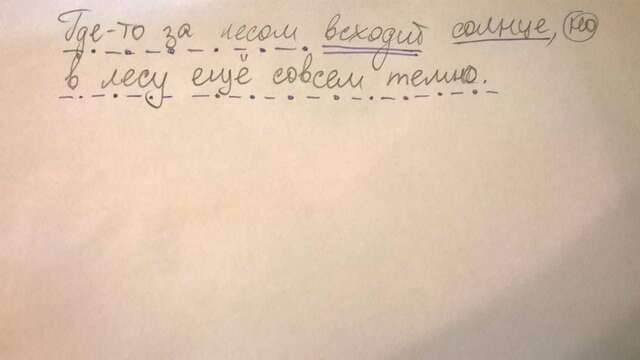 Где-то за лесом всходит солнце, но
в лесу ещё совсем темно.